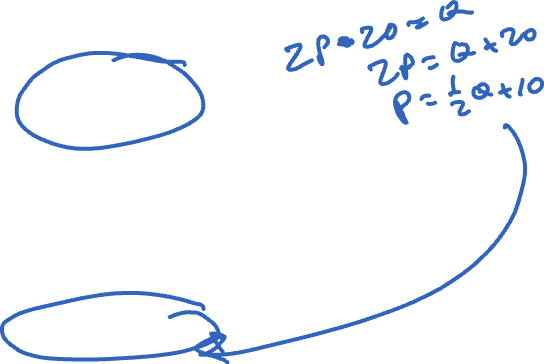 2P-20=Q
2P=Q+20
P=½Q+10